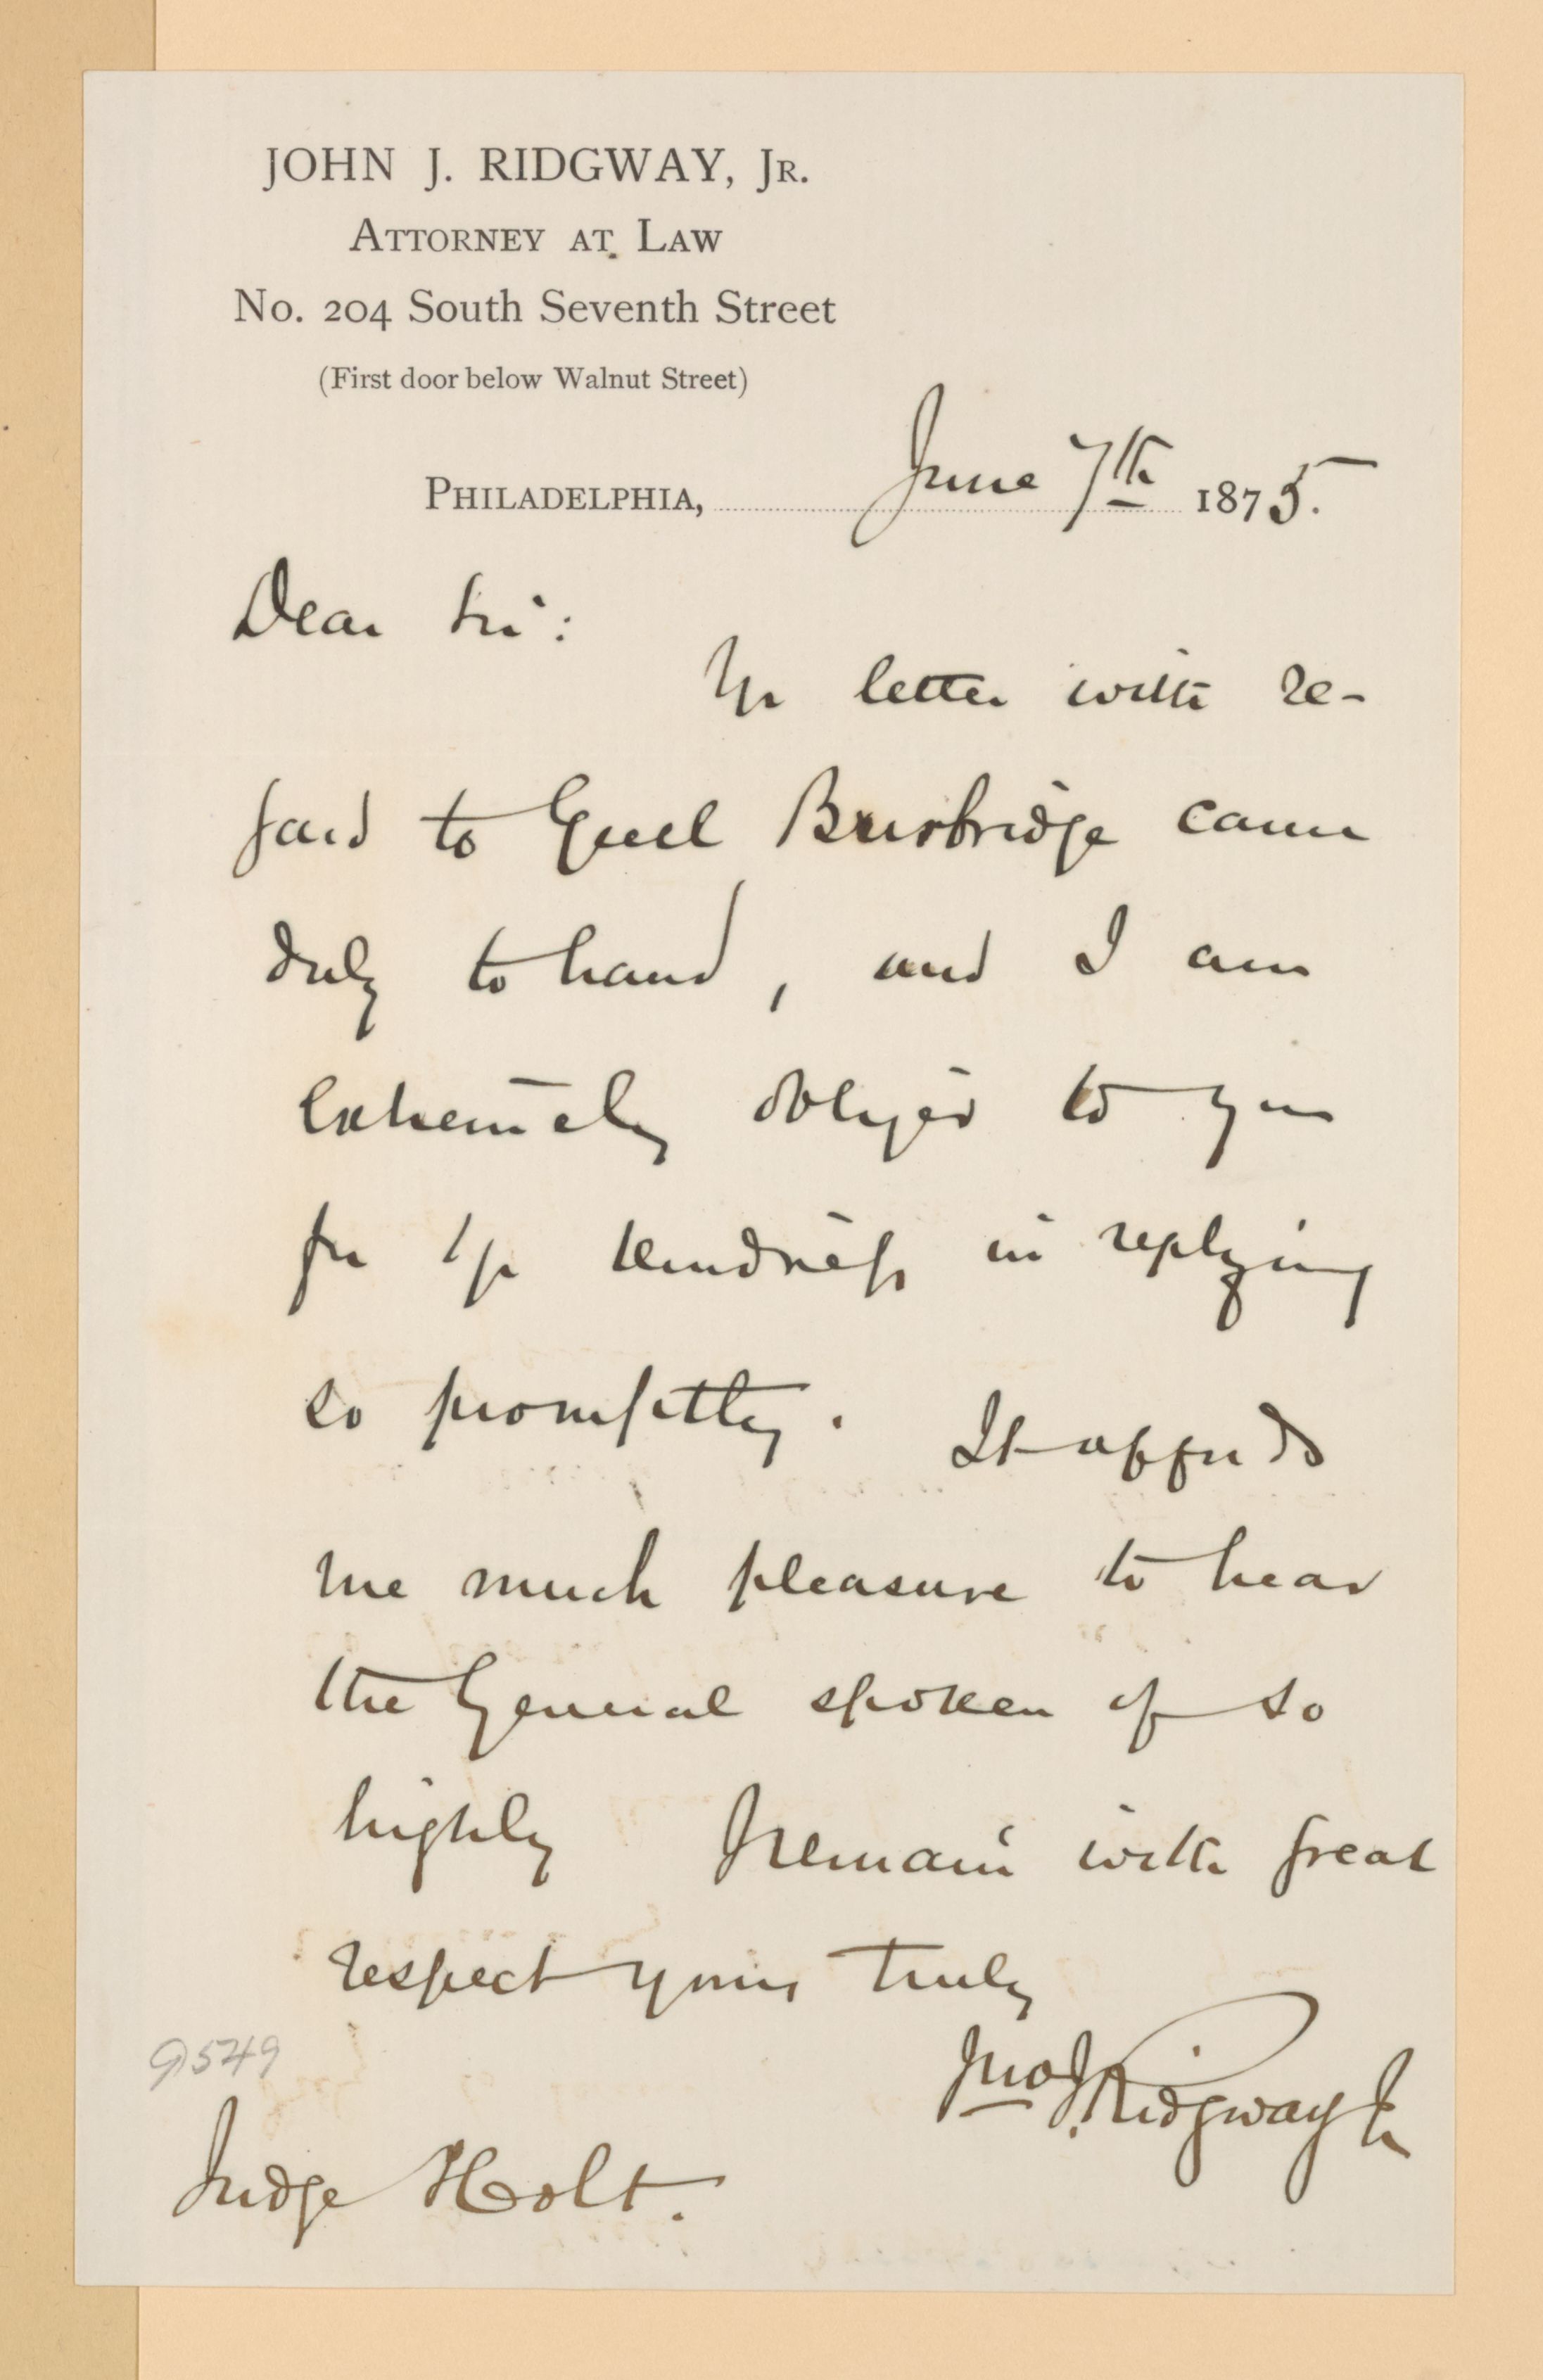 JOHN J. RIDGWAY, JR.
ATTORNEY AT LAW
No. 204 South Seventh Street
(First door below Walnut Street)
PHILADELPHIA, June 7th 1875.
Dear Sir:
Yr letter with re-
gard to Genl Burbridge came
duly to hand, and I am
extremely obliged to you
for yr kindness in replying
so promptly. It affords
me much pleasure to hear
the General spoken of so
highly I remain with great
respect yours truly
Jno J. Ridgway Jr
9549
Judge Holt.